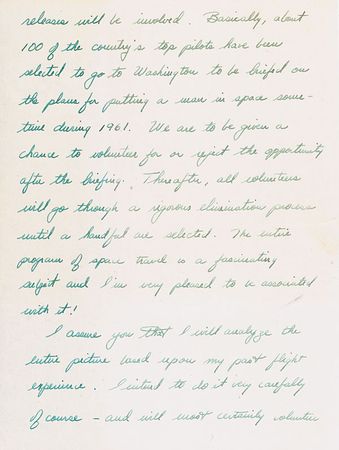 releases will be involved. Basically, about
100 of the country's top pilots have been
selected to go to Washington to be briefed on
the plans for putting a man in space some-
time during 1961. We are to be given a
chance to volunteer for or reject the opportunity
after the briefing. Thereafter, all volunteers
will go through a rigorous elimination process
until a handful are selected. The entire
program of space travel is a fascinating
subject and I'm very pleased to be associated
with it!
I assure you that I will analyze the
entire picture based upon my past flight
experience. I intend to do it very carefully
of course - and will most certainly volunteer